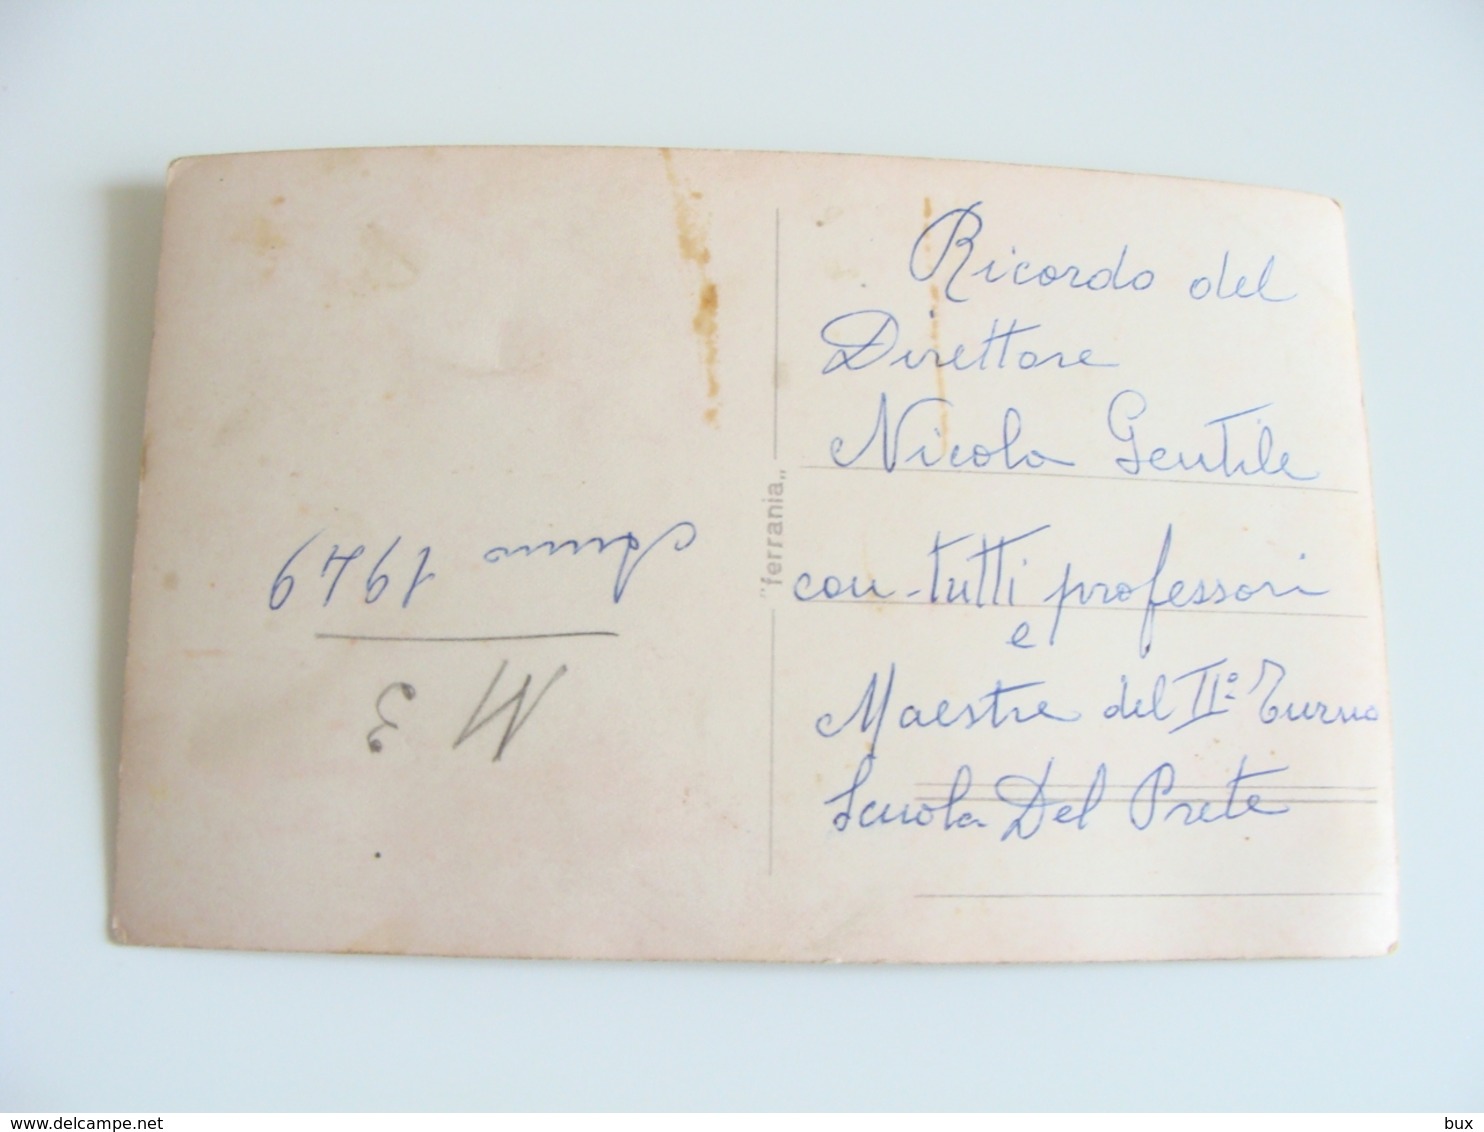 Ricordo del
Direttore
Nicola Gentile
con tutti professori
e
Maestre del II° Turno
Scuola Del Prete
"ferrania"
Anno 1949
M 3
delcampe.net
bux